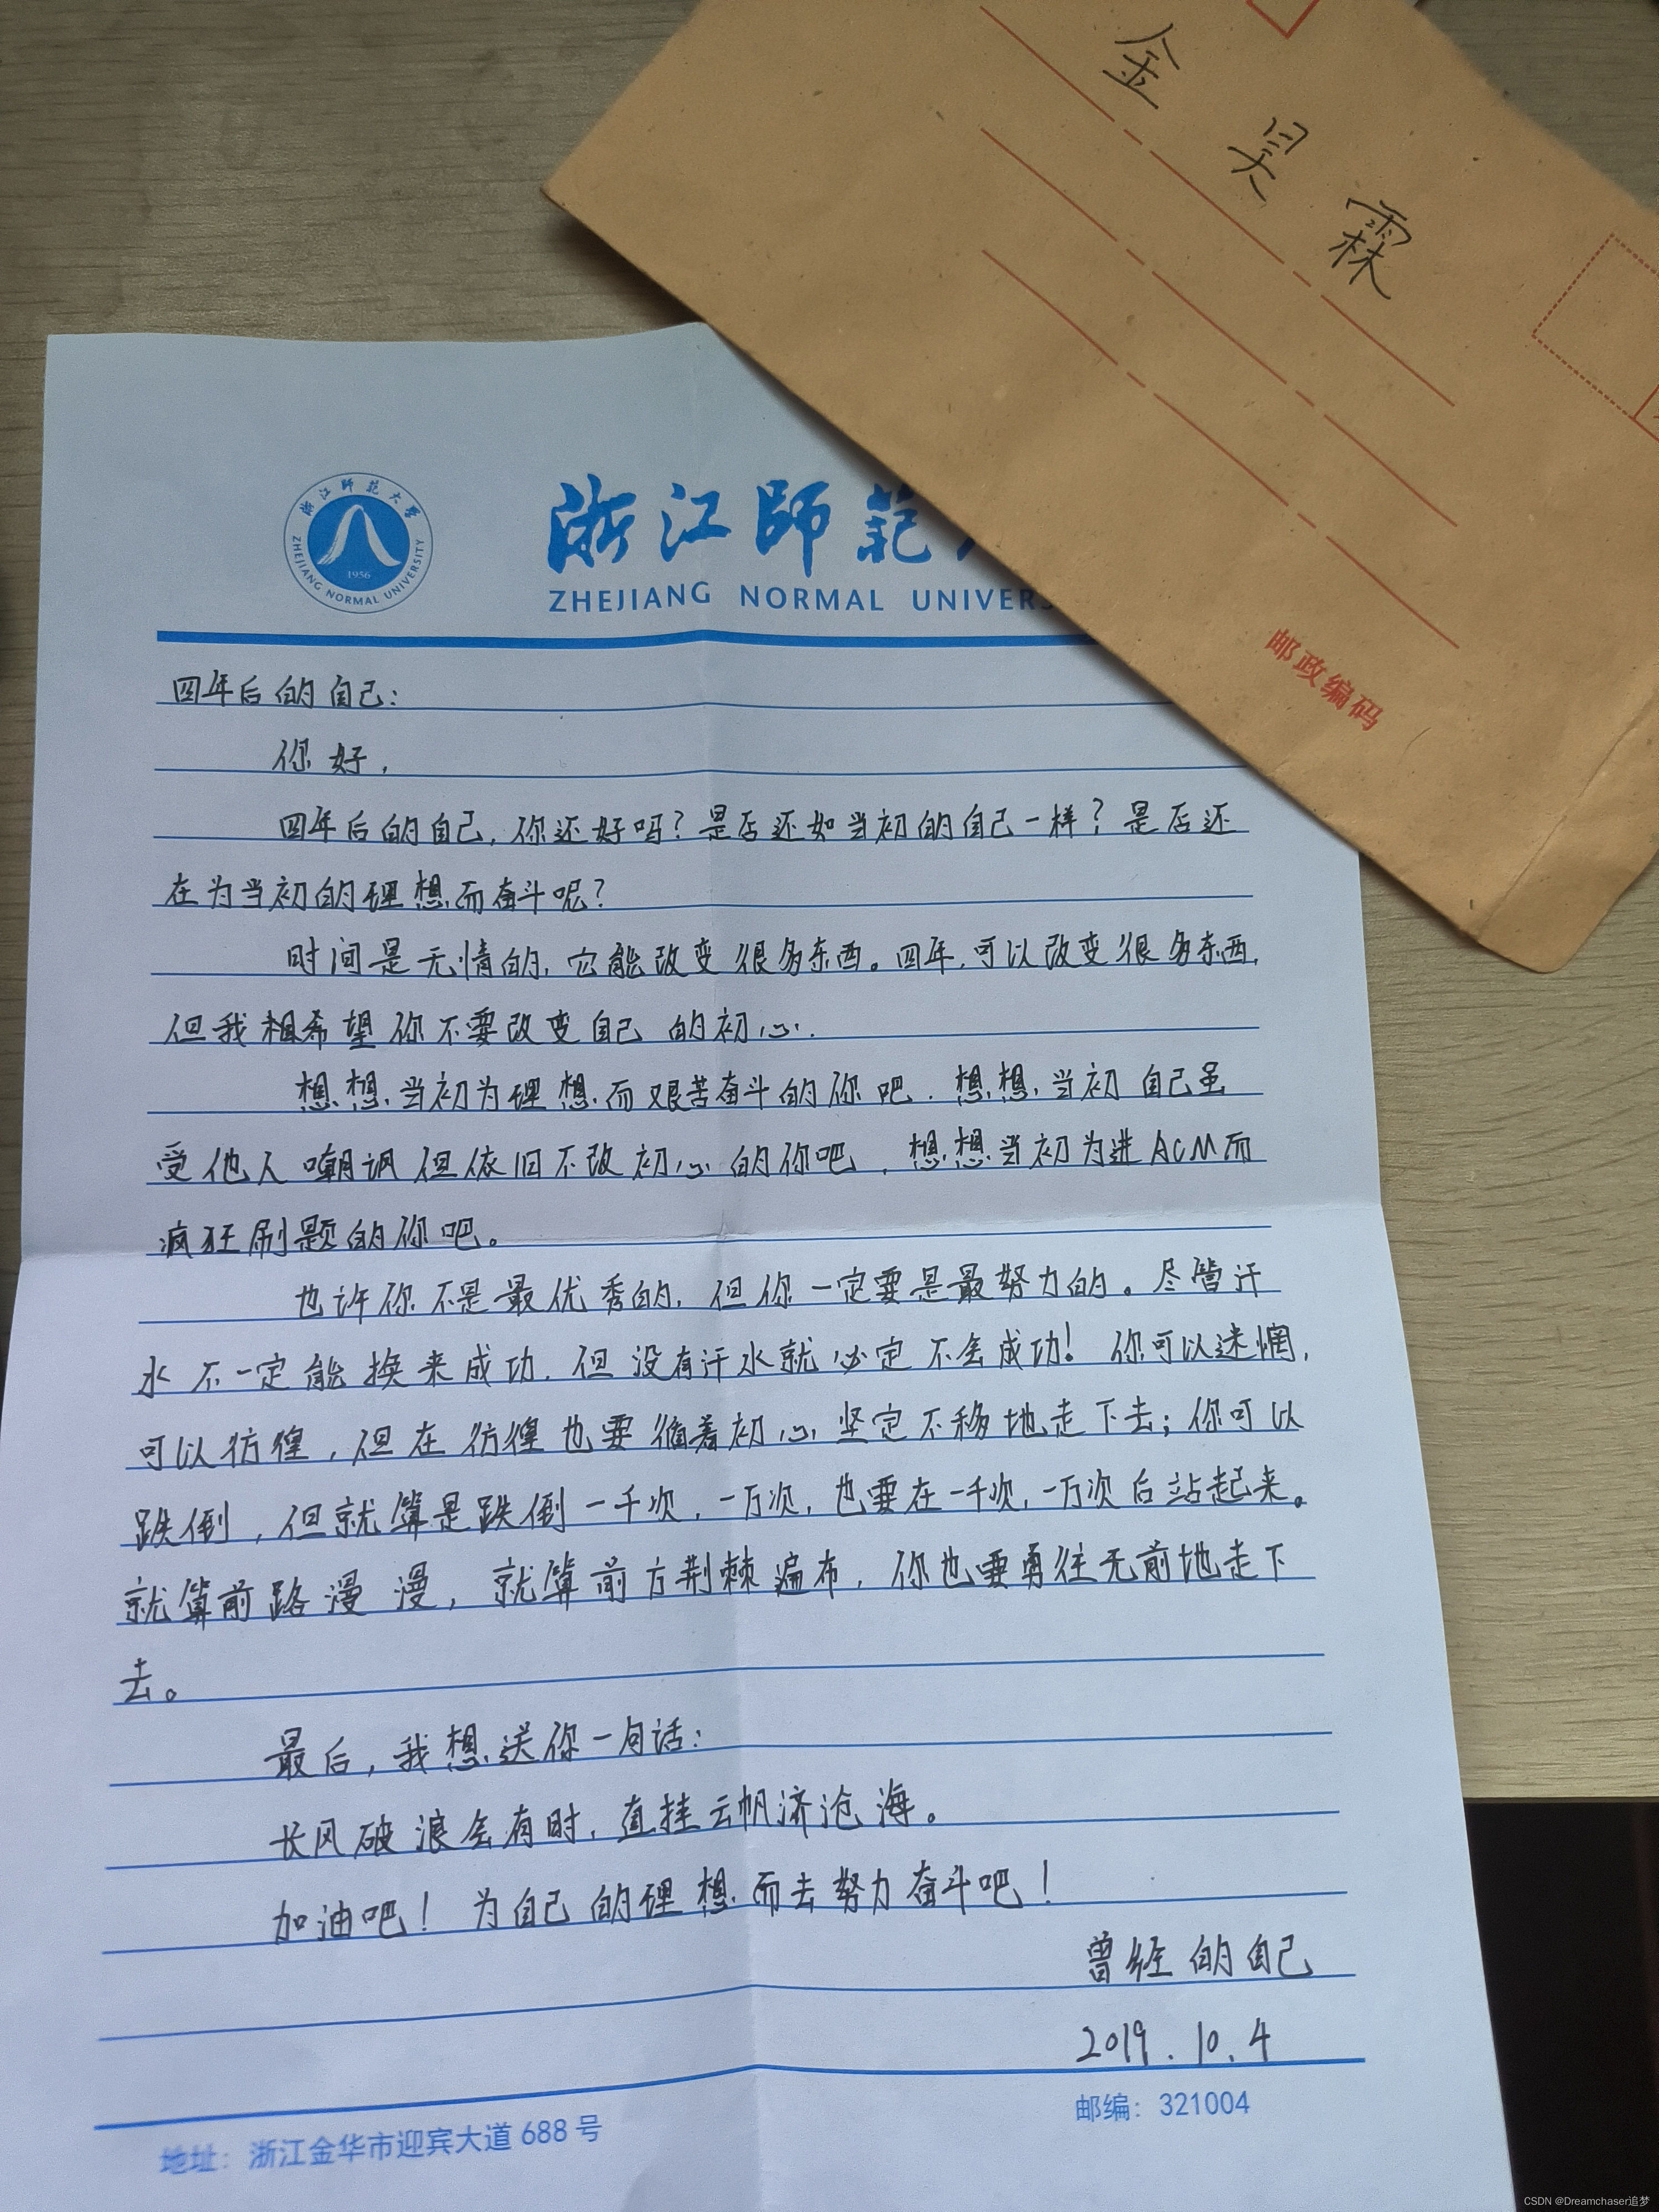 金昊霖
邮政编码
浙江師範大學
ZHEJIANG NORMAL UNIVERSITY
1956
浙江師範
ZHEJIANG NORMAL UNIVERS
四年后的自己：
你好，
四年后的自己，你还好吗？是否还如当初的自己一样？是否还
在为当初的理想而奋斗呢？
时间是无情的，它能改变很多东西。四年，可以改变很多东西，
但我想希望你不要改变自己的初心．
想想当初为理想而艰苦奋斗的你吧．想想当初自己虽
受他人嘲讽但依旧不改初心的你吧，想想当初为进ACM而
疯狂刷题的你吧。
也许你不是最优秀的，但你一定要是最努力的。尽管汗
水不一定能换来成功，但没有汗水就必定不会成功！你可以迷惘，
可以彷徨，但在彷徨也要循着初心坚定不移地走下去；你可以
跌倒，但就算是跌倒一千次，一万次，也要在一千次，一万次后站起来。
就算前路漫漫，就算前方荆棘遍布，你也要勇往无前地走下
去。
最后，我想送你一句话：
长风破浪会有时，直挂云帆济沧海。
加油吧！为自己的理想而去努力奋斗吧！
曾经的自己
2019.10.4
地址：浙江金华市迎宾大道 688 号
邮编：321004
CSDN @Dreamchaser追梦